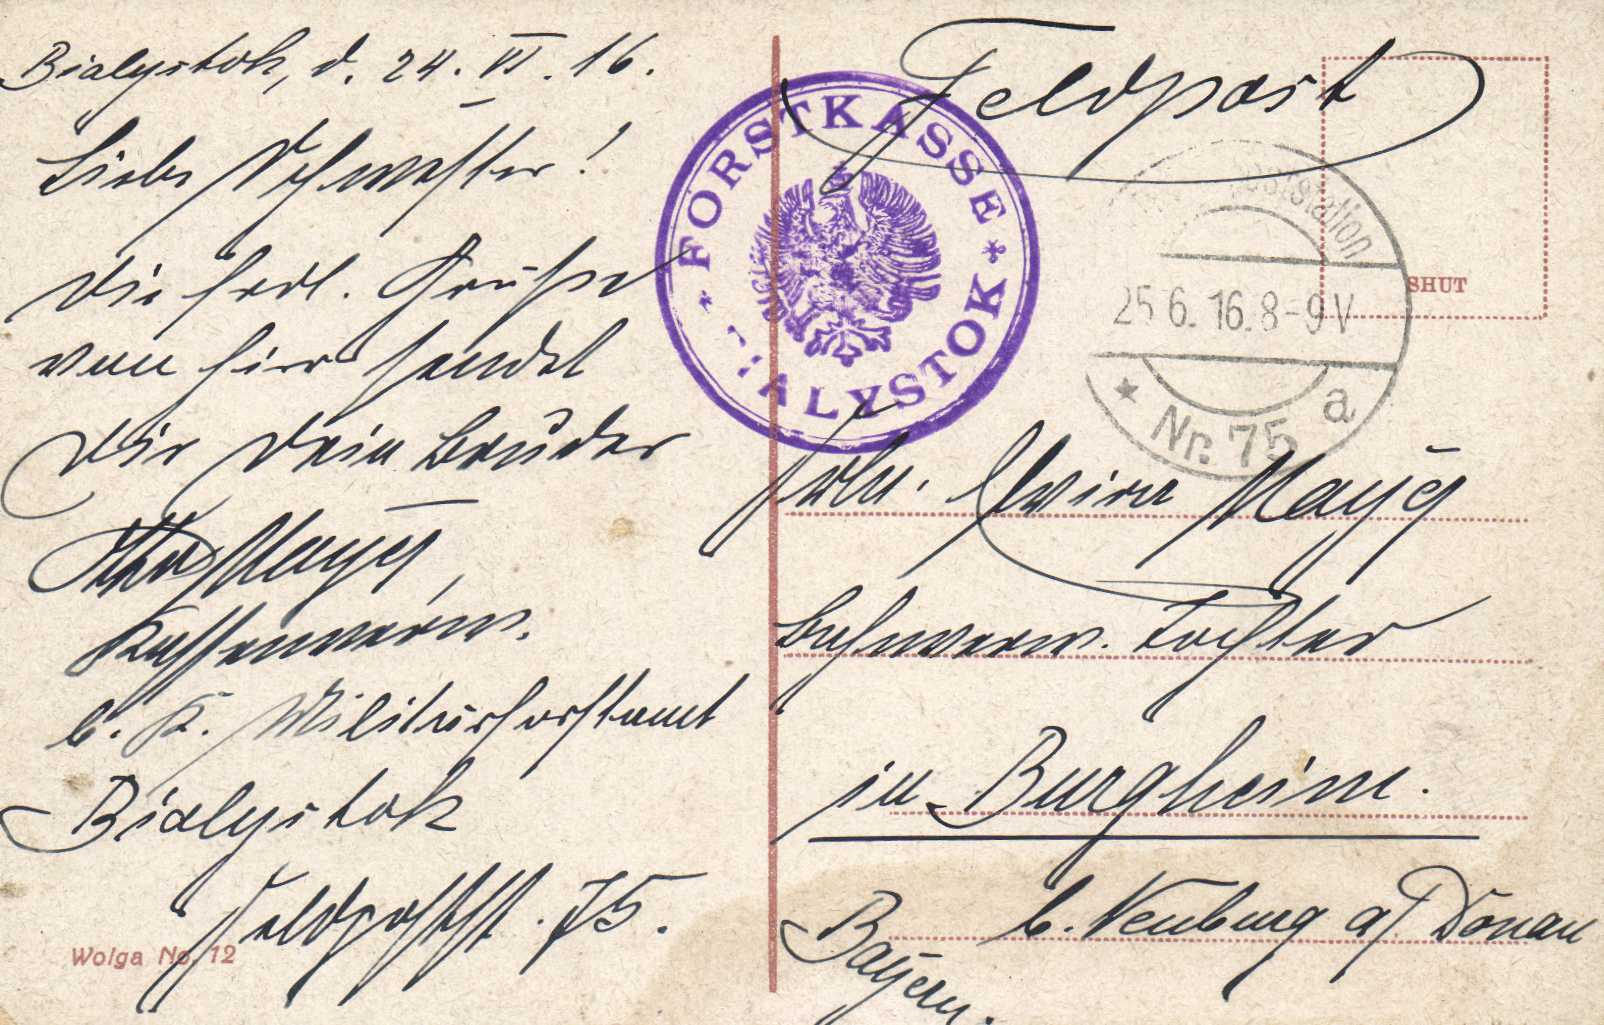 Bialystok, d. 24. VI. 16.
Liebe Schwester!
Die herl. Grüße
von hier sendet
Dir Dein Bruder
Mayr,
Kassenverw.
b. K. Militärforstamt
Bialystok
Feldpostst. 75.
Wolga No. 12
Feldpost
FORSTKASSE
BIALYSTOK
poststation
25 6. 16. 8-9 V
Nr. 75 a
SHUT
Frln. Elvira Mayr
Bahnverw. Tochter
in Burgheim.
b. Neuburg a/ Donau
Bayern.